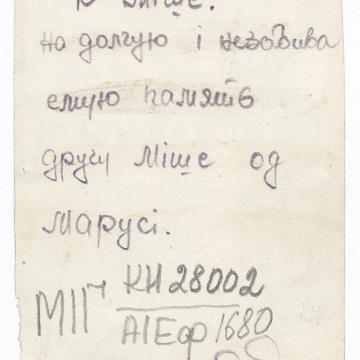 на долгую і незабива
емую память
другу Мішe од
Марусі.
КН 28002
АІЕф 1680